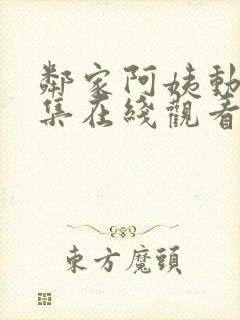 鄰家阿姨動
集在綫觀看
東方魔頭